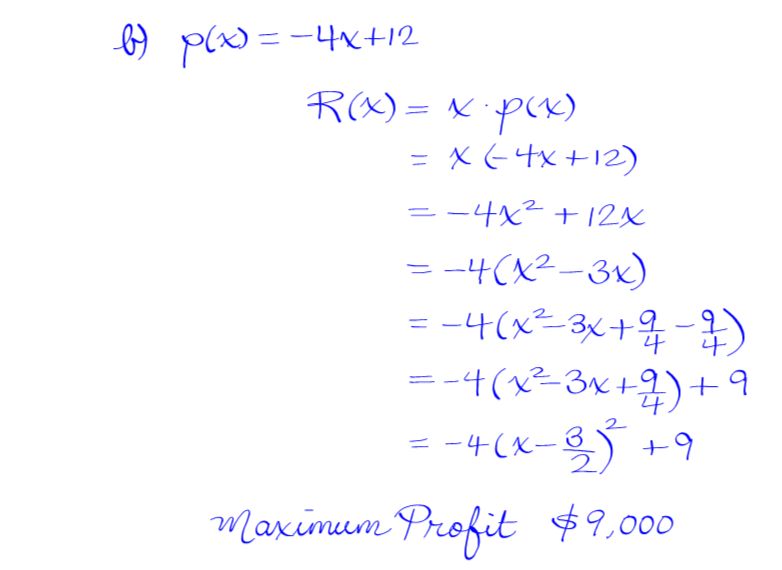 b) p(x) = -4x+12
R(x) = x · p(x)
= x (-4x+12)
= -4x² + 12x
= -4(x² - 3x)
= -4(x² - 3x + 9/4 - 9/4)
= -4(x² - 3x + 9/4) + 9
= -4(x - 3/2)² + 9
Maximum Profit $9,000